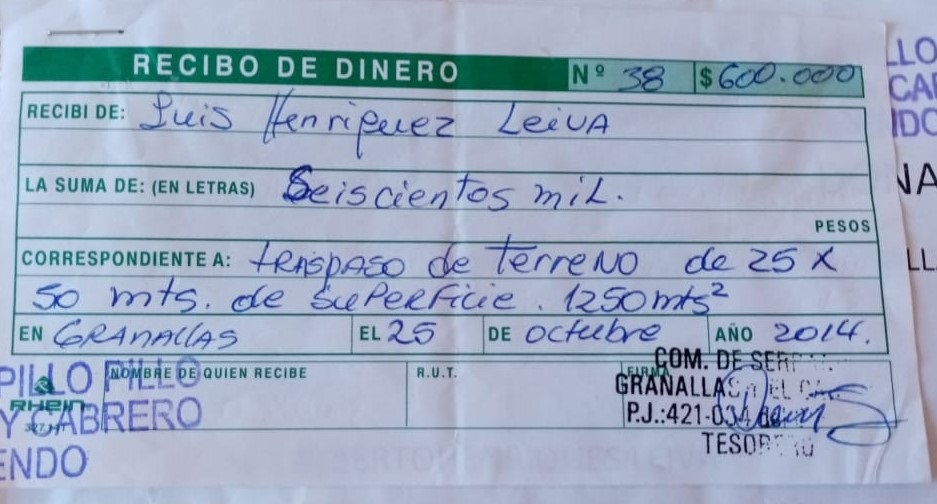 RECIBO DE DINERO Nº 38 $ 600.000
RECIBI DE: Luis Henriquez Leiva
LA SUMA DE: (EN LETRAS) Seiscientos mil.
PESOS
CORRESPONDIENTE A: traspaso de terreno de 25 x
50 mts. de superficie. 1250 mts²
EN GRANALLAS EL 25 DE octubre AÑO 2014.
NOMBRE DE QUIEN RECIBE R.U.T. FIRMA
RHEIN
COM. DE SER
GRANALLAS
P.J.:421-034
TESORERO
PILLO PILLO
Y CABRERO
ENDO
LLO
CAB
NDO
NA
LL